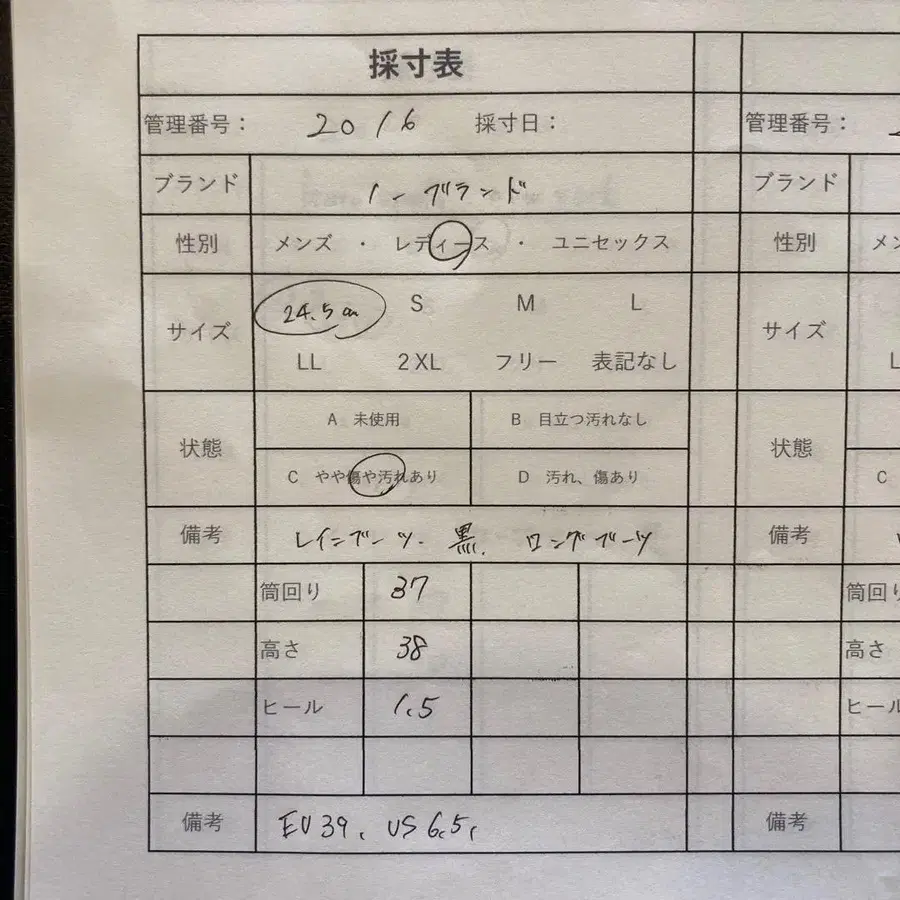 採寸表
管理番号： 2016 採寸日： 管理番号：
ブランド ノーブランド ブランド
性別 メンズ ・ レディース ・ ユニセックス 性別 メン
サイズ 24.5cm S M L サイズ
LL 2XL フリー 表記なし L
状態 A 未使用 B 目立つ汚れなし 状態
C やや傷や汚れあり D 汚れ、傷あり C
備考 レインブーツ. 黒. ロングブーツ 備考
筒回り 37 筒回り
高さ 38 高さ
ヒール 1.5 ヒール
備考 EU39、US6.5、 備考